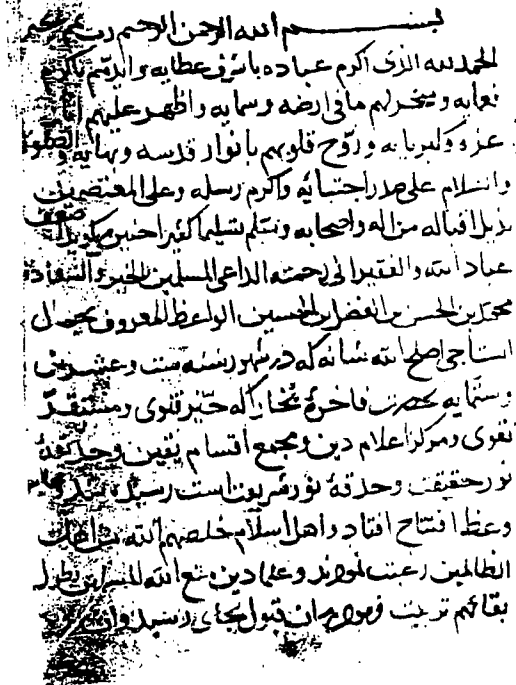 بسم الله الرحمن الرحیم رب تمم
الحمد لله الذی اکرم عباده باشرف عطایه و ایدهم باکرم
نعمایه و سخر لهم ما فی ارضه و سمایه و اظهر علیهم
عزه و کبریایه و روح قلوبهم بانوار قدسه و بهایه و الصلوة
والسلام علی صدر اجتبائه و اکرم رسله و علی المعتصمین
بذیل اقباله من اله و اصحابه و سلم تسلیما کثیرا چنین میگوید ضعف
عباد الله و الفقیر الی رحمته الداعی المسلمین الخیر و السعادة
محمد بن الحسن بن الفضل بن الحسین الواعظ المعروف
استاجی اصلح الله شانه که در شهور سنه ست و عشرین
و ستمایه بحضرت فاخرهٔ بخارا که حیز فتوی و مستقر
تقوی و مرکز اعلام دین و مجمع اقسام یقین و حدیقهٔ
نور حقیقت و حدقهٔ نور شریعت است رسیده شد
وعظ افتتاح افتاد و اهل اسلام خلصهم الله من
الظالمین رغبت نمودند و علماء دین متع الله المسلمین بطول
بقائهم تربیت فرمودند و آن قبول بجای رسید و آن